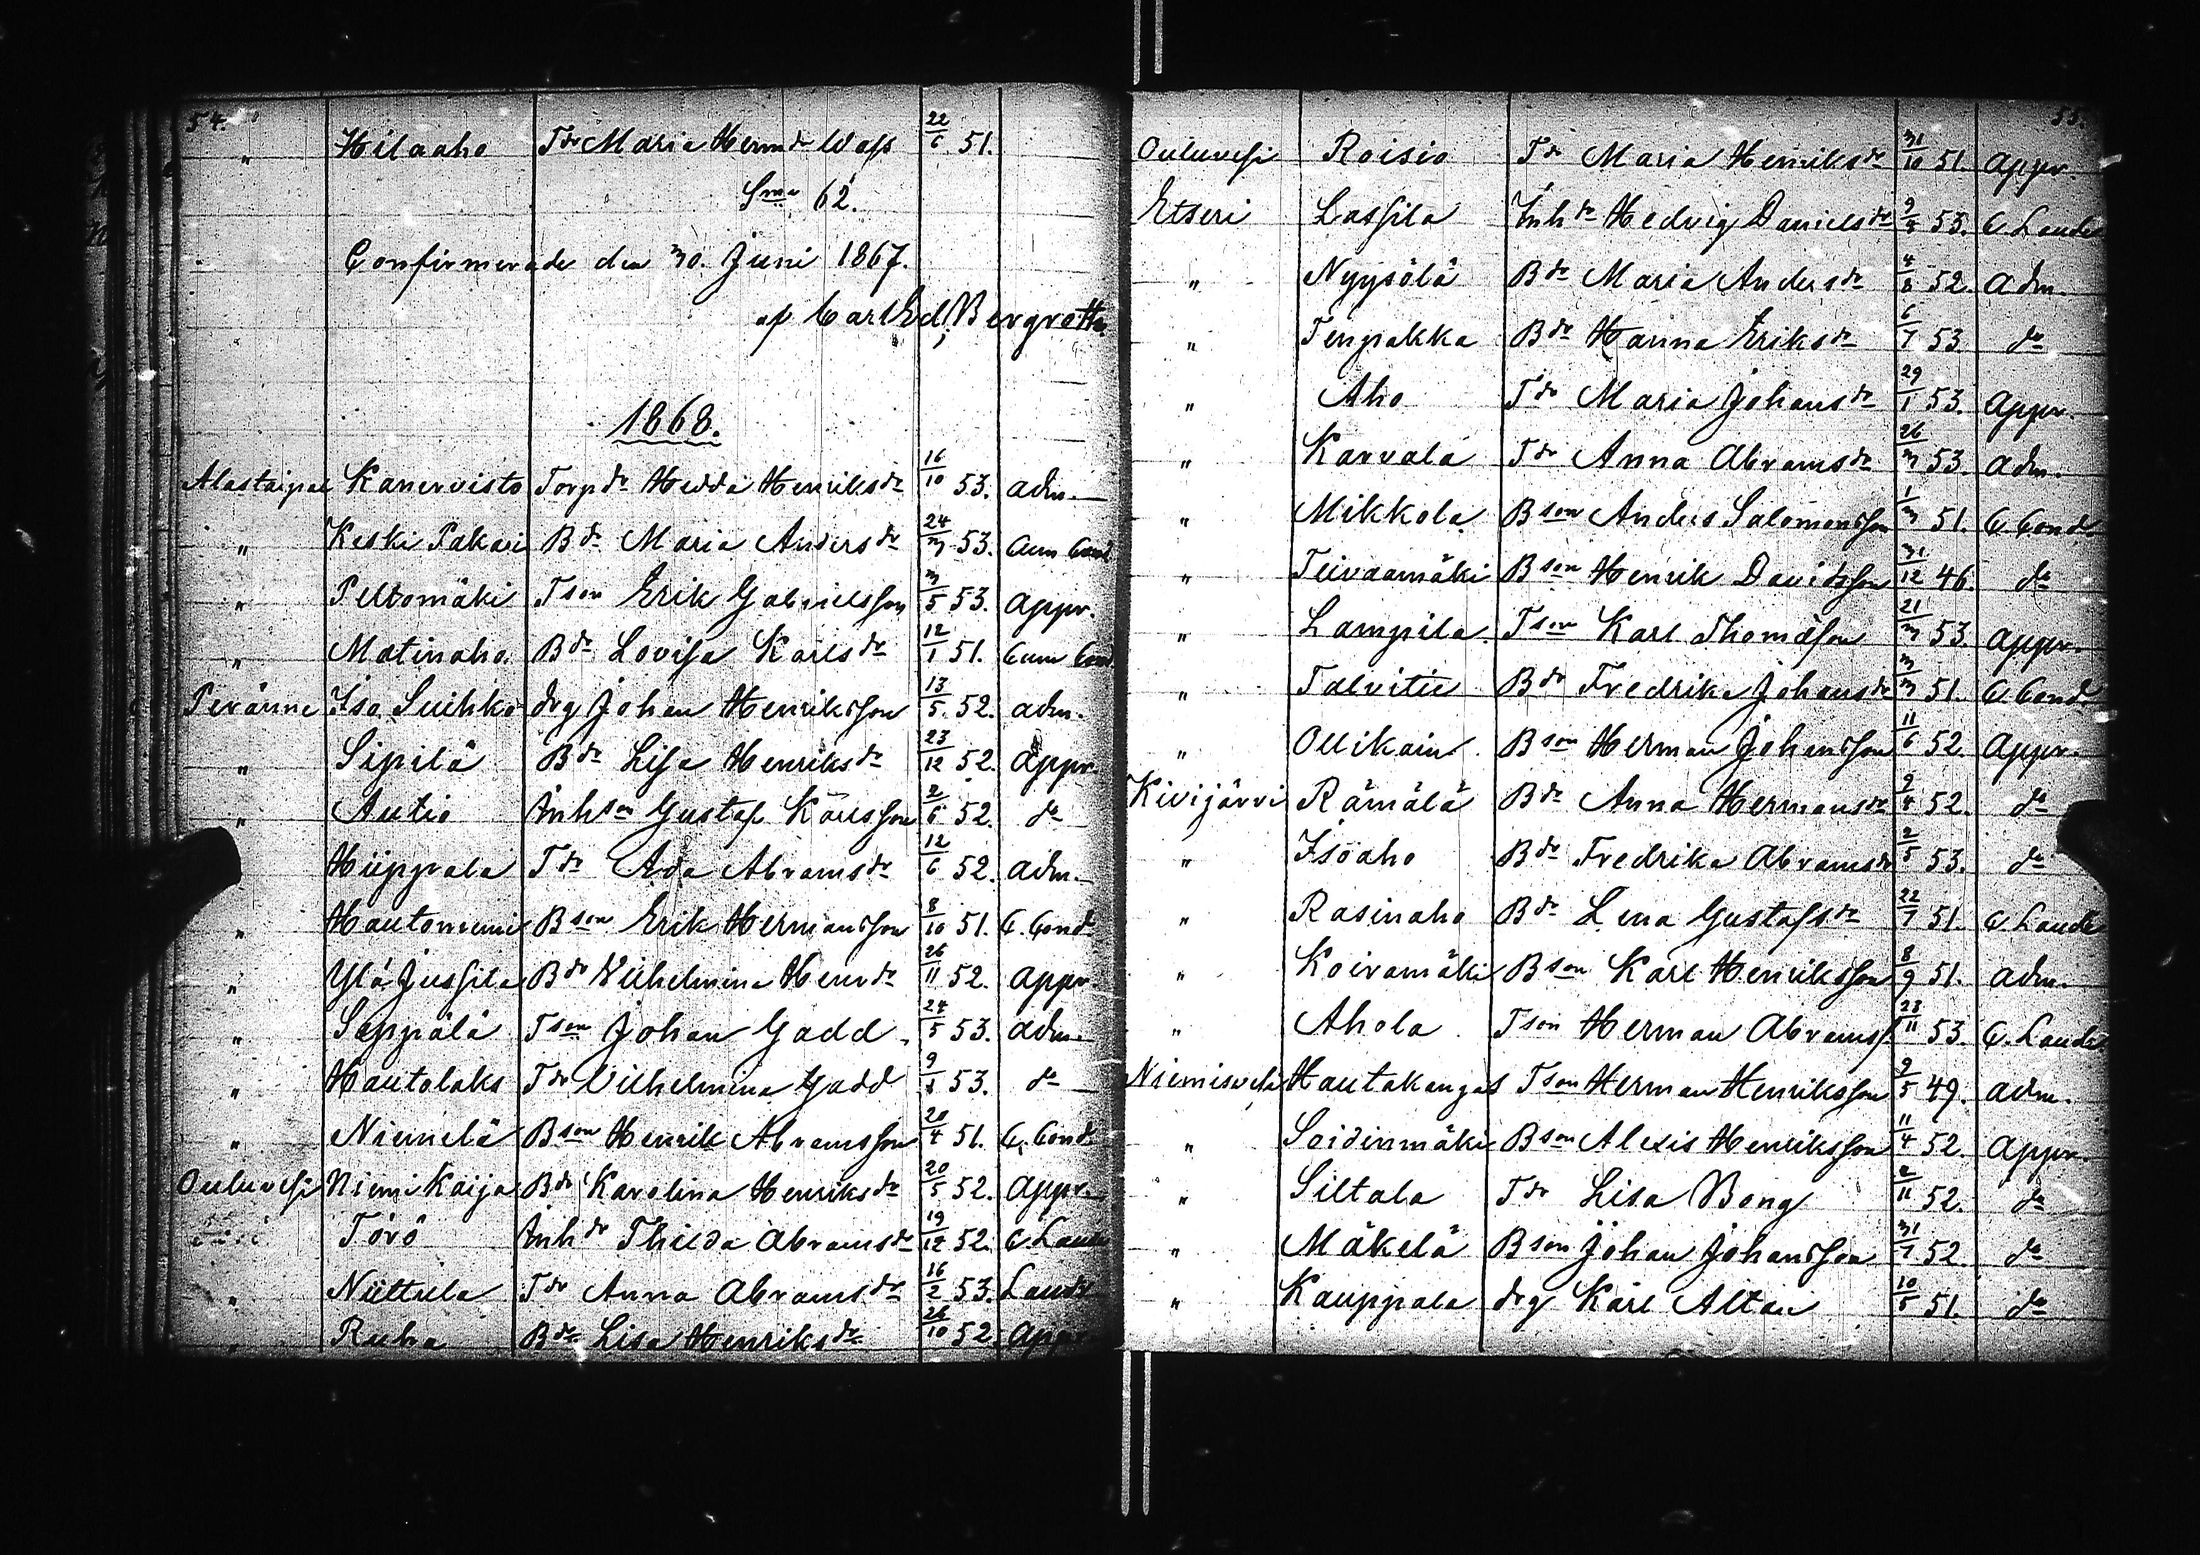 54.
" Hilaaho Tdr Maria Hermdr Wass 22/6 51.
Sma 62.
Confirmerade den 30. Juni 1867.
af Carl Ed, Bergroth.
1868.
Alastaipal Kanervisto Torpdr Hedda Henriksdr 16/10 53. adm.
" Keski Pakari Bdr Maria Andersdr 24/3 53. Cum Cond
" Peltomäki Tson Erik Gabrielsson 3/5 53. appr.
" Matinaho Bdr Lovisa Karlsdr 12/1 51. Cum Cond
Peränne Iso Suihko drg Johan Henriksson 13/5 52. adm.
" Sipilä Bdr Lisa Henriksdr 23/12 52. appr.
" Autio Inhson Gustaf Karlsson 2/6 52. do
Hiipprala Tdr Ada Abramsdr 12/6 52. adm.
" Hautoniemi Bson Erik Hermansson 8/10 51. C. Cond.
" Ylä Jussila Bdr Vilhelmina Henrdr 26/11 52. appr.
" Seppälä Tson Johan Gadd 24/5 53. adm.
" Hautalaks Tdr Vilhelmina Gadd 53. do
" Niemelä Bson Henrik Abramsson 20/4 51. C. Cond.
Ouluvesi Niemi Kaija Bdr Karolina Henriksdr 20/5 52. appr.
Törö Inhdr Thilda Abramsdr 19/12 52. C. Laude
" Niittula Tdr Anna Abramsdr 16/2 53. Laude
" Ruha Bdr Lisa Henriksdr 26/10 52. appr
55.
Ouluvesi Roisio Tdr Maria Henriksdr 31/10 51. appr.
Etseri Lassila Inhdr Hedvig Danielsdr 53. C. Laude
" Nyysölä Bdr Maria Andersdr 4/8 52. adm.
" Tenpakka Bdr Hanna Eriksdr 6/7 53 do
" Aho Tdr Maria Johansdr 29/1 53. appr.
" Karvala Tdr Anna Abramsdr 26/3 53. adm.
" Mikkola Bson Anders Salomonsson 1/3 51. C. Cond.
" Teivaamäki Bson Henrik Davidsson 31/12 46. do
" Lampila Tson Karl Thomasson 21/3 53. appr.
" Talvitie Bdr Fredrika Johansdr 3/3 51. C. Cond
" Ollikain Bson Herman Johansson 11/6 52. appr.
Kivijärvi Rämälä Bdr Anna Hermansdr 52. do
" Isoaho Bdr Fredrika Abramsdr 2/5 53. do
" Rasinaho Bdr Lena Gustafsdr 22/7 51. C. Laude
" Koiramäki Bson Karl Henriksson 8/9 51. adm.
" Ahola Tson Herman Abramss. 23/11 53. C. Laude
Niemisvesi Hautakangas Tson Herman Henriksson 9/5 49. adm.
" Soidinmäki Bson Alexis Henriksson 11/4 52. appr.
" Siltala Tdr Lisa Bong 2/11 52. do
" Mäkelä Bson Johan Johansson 31/7 52. do
" Kauppala drg Karl Altan 10/5 51. do